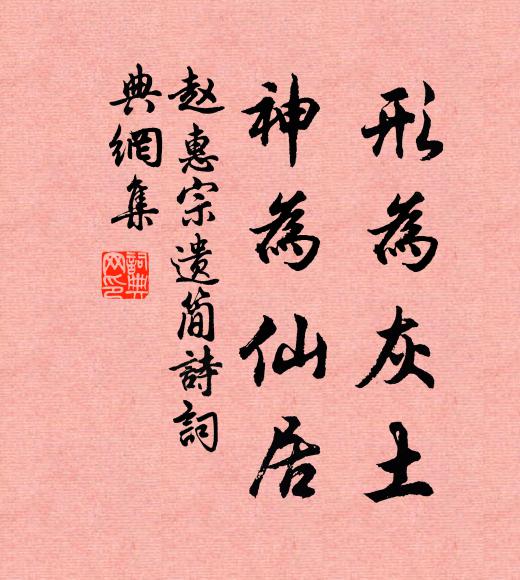 形為灰土
神為仙居
赵惠宗遗简詩詞
典網集
詞典网印